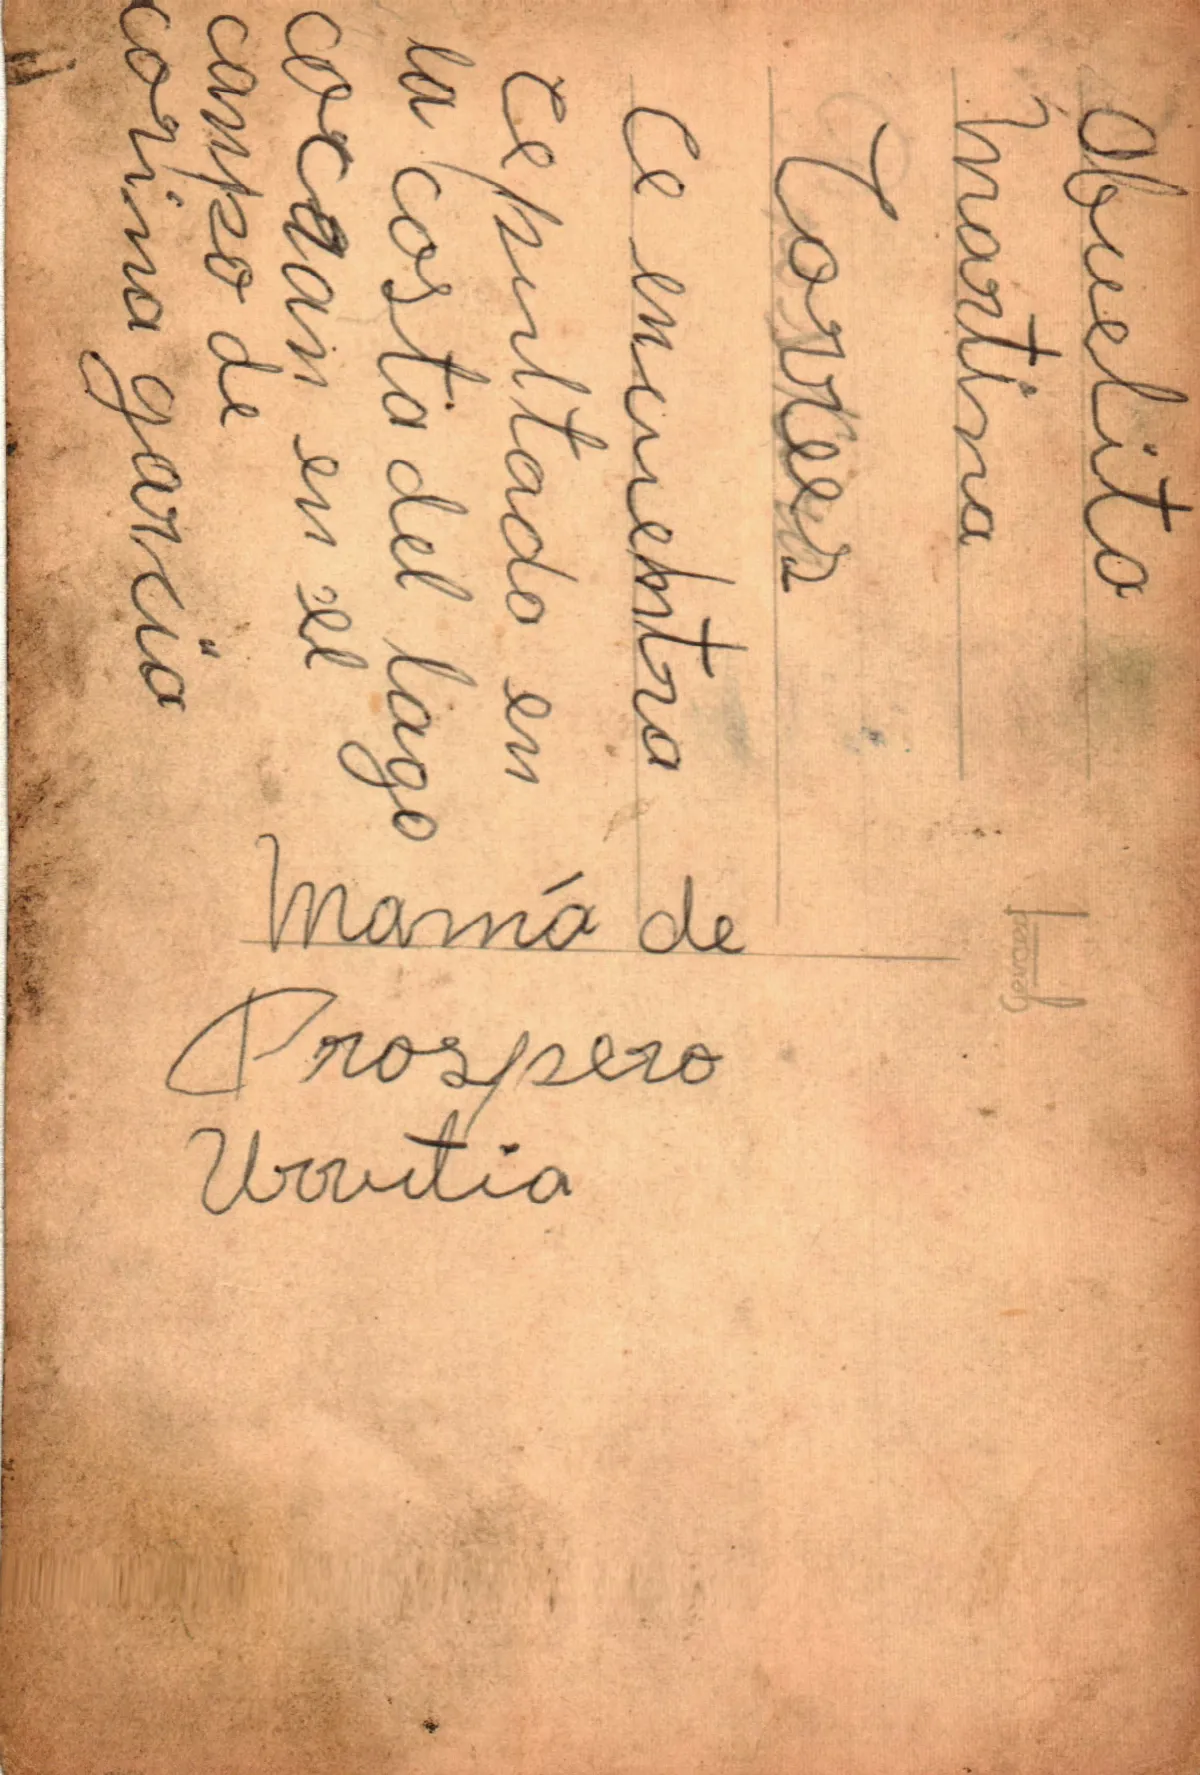 Abuelita
Martina
Torres
Ce emcuentra
Cepultado en
la costa del lago
cocxan en el
campo de
corina garcia
Mamá de
Prospero
Urrutia